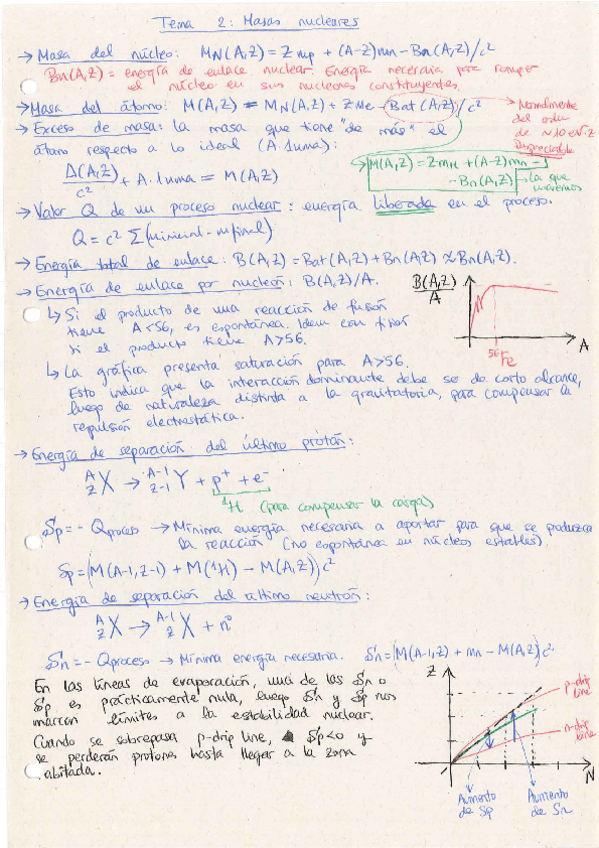 Tema 2: Masas nucleares
→ Masa del núcleo: M_N(A,Z) = Z m_p + (A-Z) m_n - B_n(A,Z)/c²
B_n(A,Z) = energía de enlace nuclear. Energía necesaria para romper
el núcleo en sus nucleones constituyentes.
→ Masa del átomo: M(A,Z) = M_N(A,Z) + Z m_e - Bat(A,Z)/c²
→ Normalmente
del orden
de ~10 eV·Z
Despreciable
→ Exceso de masa: la masa que tiene "de más" el
átomo respecto a lo ideal (A·1uma):
Δ(A,Z)/c² + A·1uma = M(A,Z)
M(A,Z) = Z m_H + (A-Z) m_n -
- B_n(A,Z)
→ La que
usaremos
→ Valor Q de un proceso nuclear: energía liberada en el proceso.
Q = c² Σ(m inicial - m final)
→ Energía total de enlace: B(A,Z) = Bat(A,Z) + B_n(A,Z) ≈ B_n(A,Z).
→ Energía de enlace por nucleón: B(A,Z)/A.
↳ Si el producto de una reacción de fusión
tiene A<56, es espontánea. Idem con fisión
si el producto tiene A>56.
B(A,Z)/A
56 Fe
A
↳ La gráfica presenta saturación para A>56.
Esto indica que la interacción dominante debe ser de corto alcance,
luego de naturaleza distinta a la gravitatoria, para compensar la
repulsión electrostática.
→ Energía de separación del último protón:
^A_Z X → ^{A-1}_{Z-1} Y + p⁺ + e⁻
¹H (para compensar la carga)
S_p = - Q proceso → Mínima energía necesaria a aportar para que se produzca
la reacción (no espontánea en núcleos estables).
S_p = (M(A-1,Z-1) + M(¹H) - M(A,Z)) c²
→ Energía de separación del último neutrón:
^A_Z X → ^{A-1}_Z X + n⁰
S_n = - Q proceso → Mínima energía necesaria. S_n = (M(A-1,Z) + m_n - M(A,Z)) c²
En las líneas de evaporación, una de las S_n o
S_p es prácticamente nula, luego S_n y S_p nos
marcan límites a la estabilidad nuclear.
Cuando se sobrepasa p-drip line, S_p<0 y
se perderán protones hasta llegar a la zona
habitada.
Z
p-drip
line
n-drip
line
N
Aumento
de S_p
Aumento
de S_n